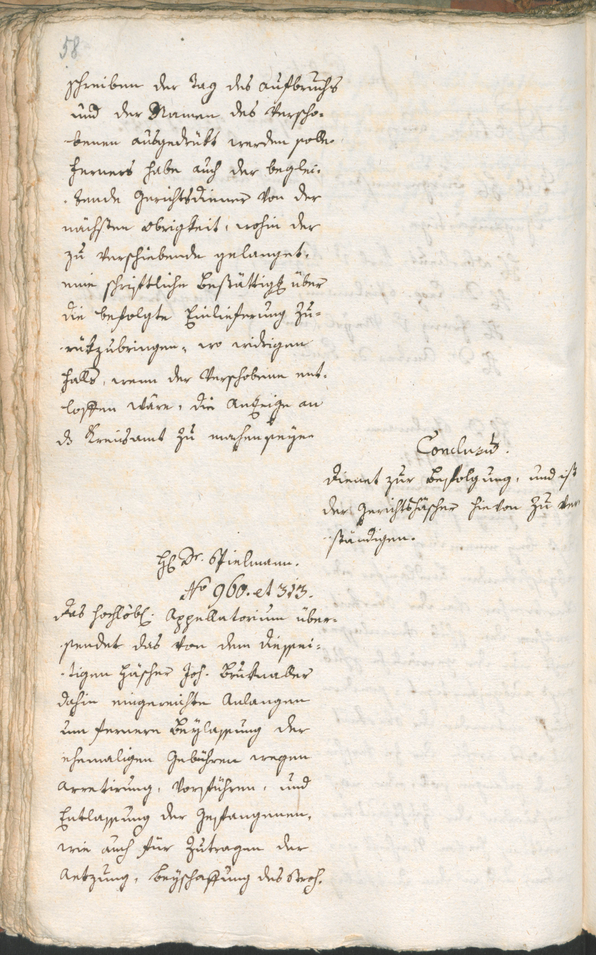 58.
schreiben der Tag des Aufbruchs
und der Namen des Verscho-
benen ausgedrükt werden solle.
Ferners habe auch der beglei-
tende Gerichtsdiener von der
nächsten Obrigkeit, wohin der
zu verschiebende gelanget,
eine schriftliche Bestättigg über
die befolgte Einlieferung zu-
rükzubringen, wo widrigen
Falls, wenn der Verschobene ent-
loffen wäre, die Anzeige an
ds Kreisamt zu machen seye.
Conclusũ.
Dienet zur Befolgung, und ist
der Gerichtshäscher hievon zu ver
ständigen.
H Dr. Spielmann.
No 960. et 313.
Das hochlöbl. Appellatorium über-
sendet das von dem diessei-
tigen Häscher Joh.
dahin eingereichte Anlangen
um fernere Beylassung der
ehemaligen Gebühren wegen
Arretirung, Vorführen, und
Entlassung der Gefangenen,
wie auch für Zutragen der
Aetzung, Beyschaffung des Stroh,